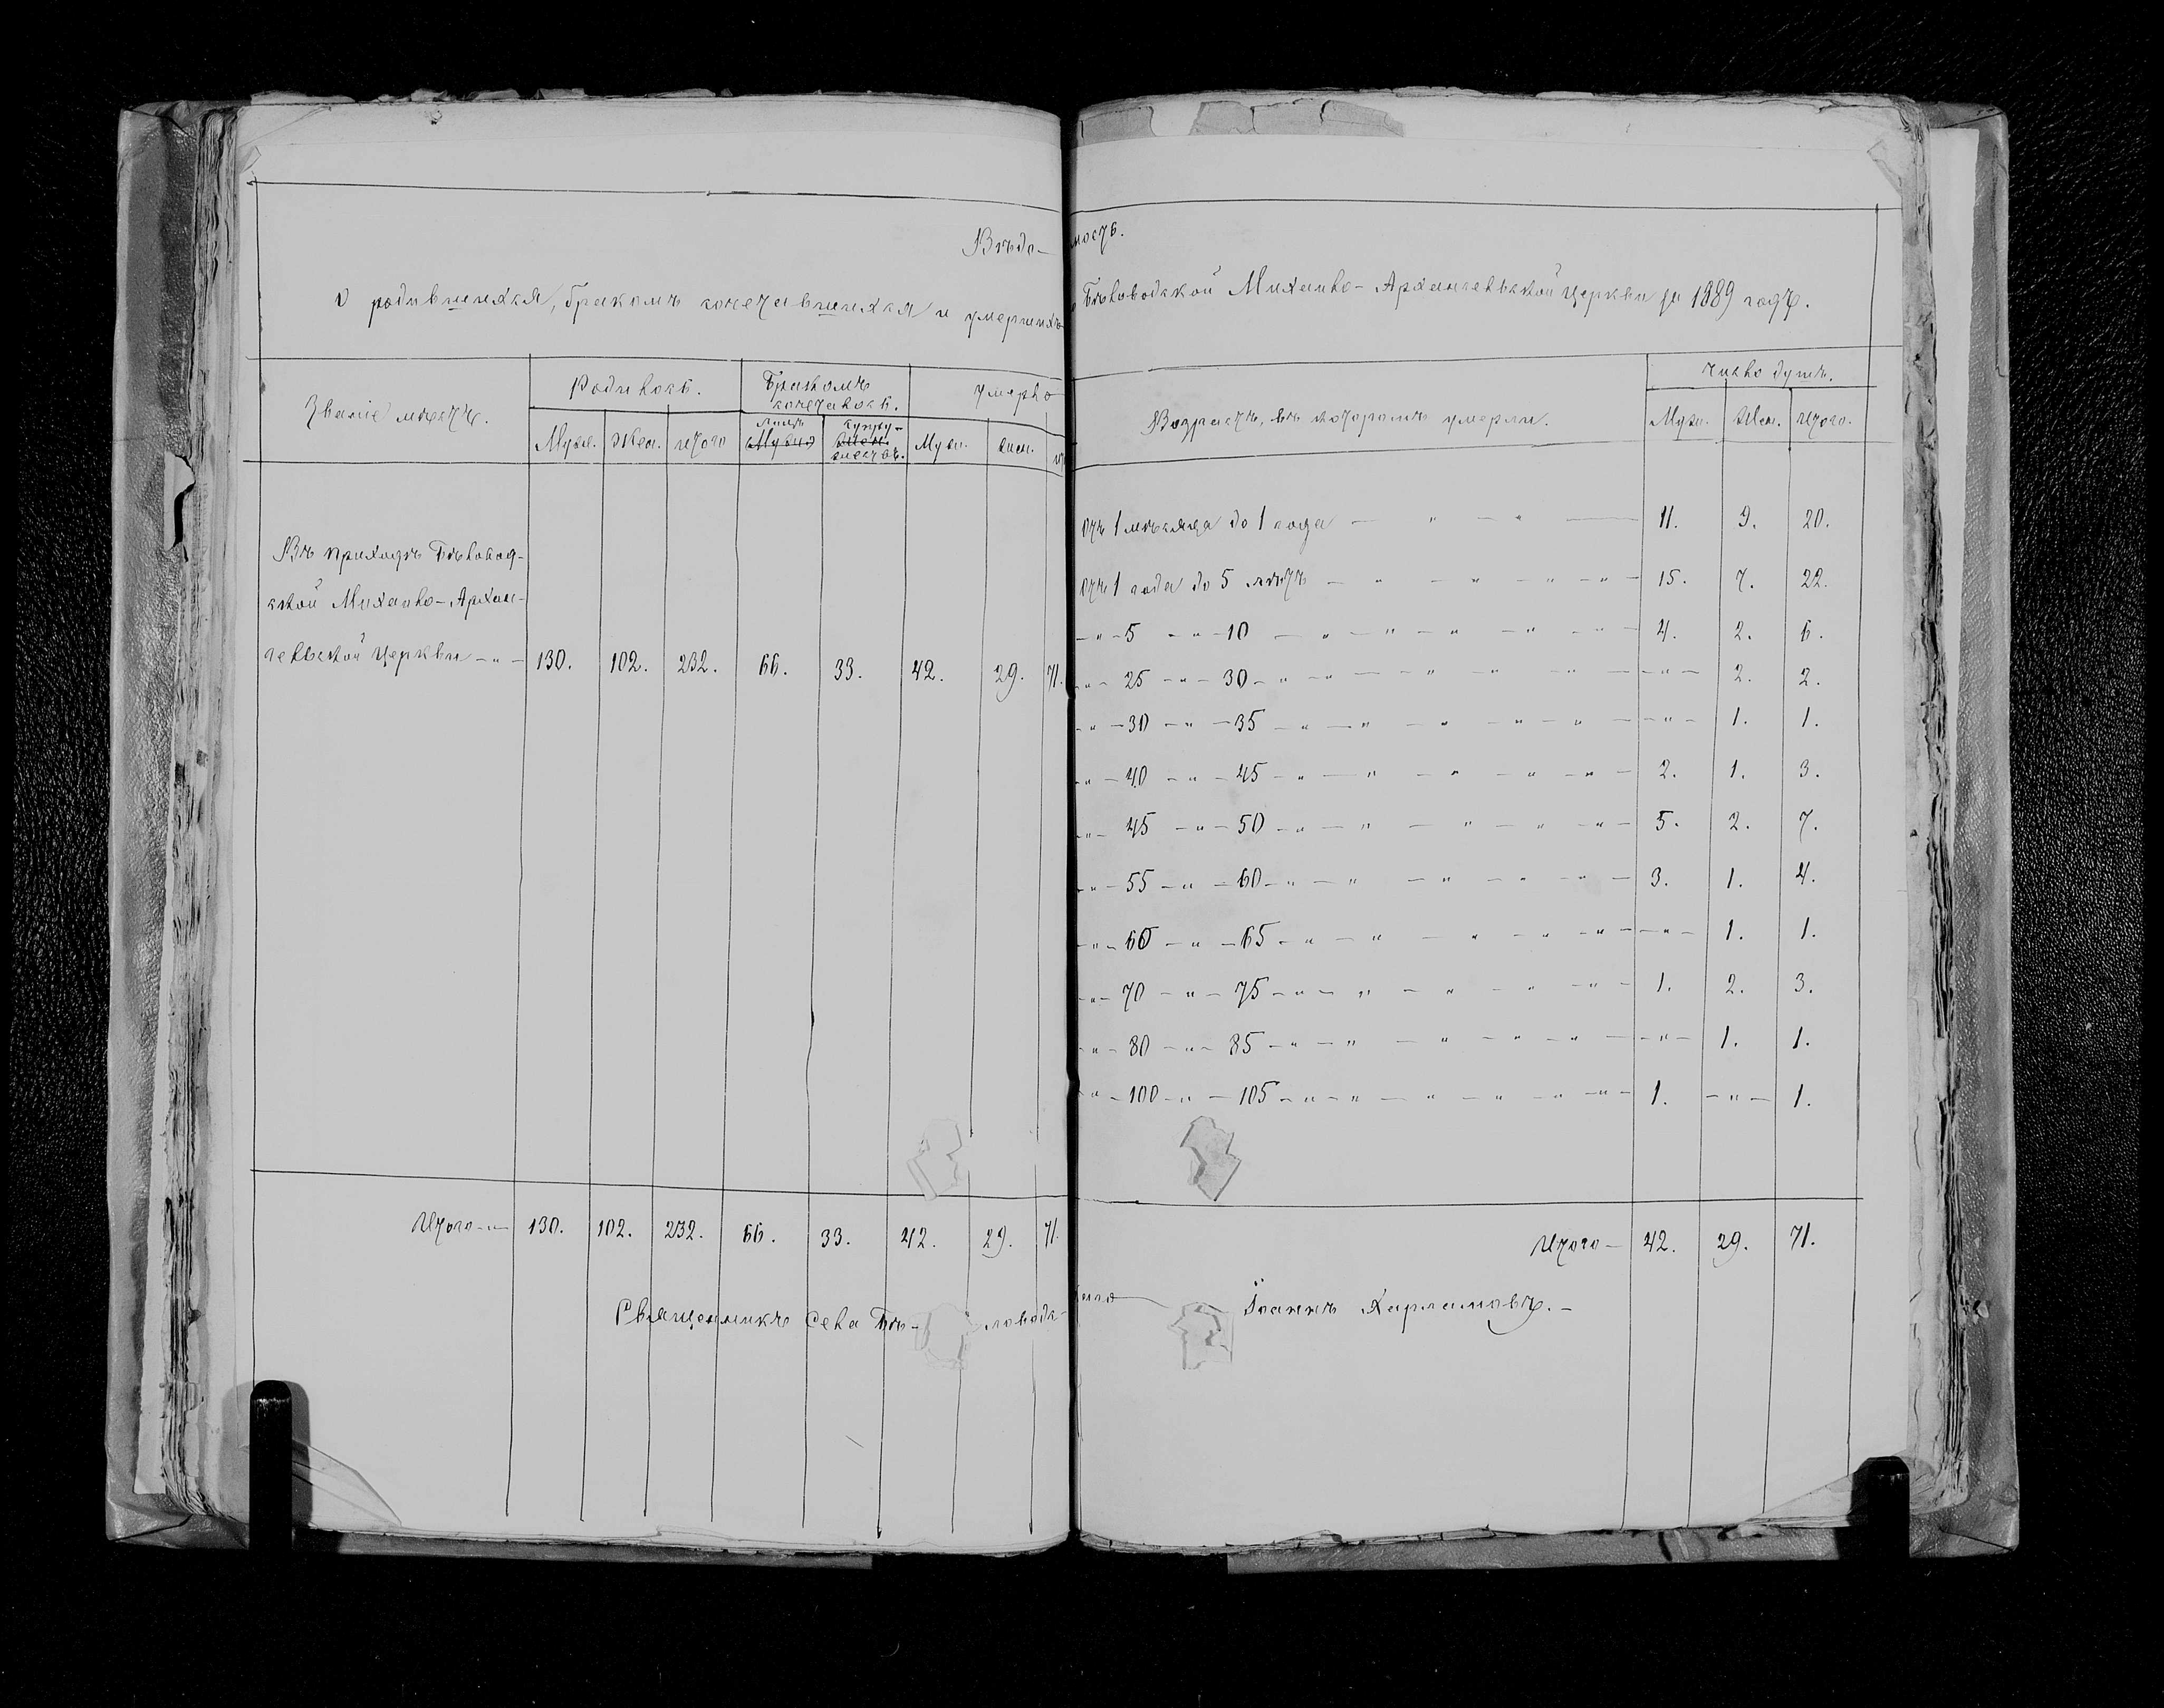 Вѣдомость.
О родившихся, бракомъ сочетавшихся и умершихъ Бѣловодской Михаило-Архангельской Церкви за 1889 годъ.
Званіе мѣстъ. Родилось. Бракомъ сочеталось. Умерло
Муж. Жен. итого Лицъ Муж. супружествъ. Жен. Муж. Жен.
Въ приходѣ Бѣловод-
ской Михаило-Архан-
гельской Церкви - „ - 130. 102. 232. 66. 33. 42. 29. 71.
Итого - „ - 130. 102. 232. 66. 33. 42. 29. 71.
Возрастъ, въ которомъ умерли. Число душъ.
Муж. Жен. Итого.
Отъ 1 мѣсяца до 1 года — „ — „ — 11. 9. 20.
Отъ 1 года до 5 лѣтъ — „ — „ — „ — „ — 15. 7. 22.
— „ — 5 — „ — 10 — „ — „ — „ — „ — „ — 4. 2. 6.
— „ — 25 — „ — 30 — „ — „ — „ — „ — „ — — „ — 2. 2.
— „ — 30 — „ — 35 — „ — „ — „ — „ — „ — — „ — 1. 1.
— „ — 40 — „ — 45 — „ — „ — „ — „ — „ — 2. 1. 3.
— „ — 45 — „ — 50 — „ — „ — „ — „ — „ — 5. 2. 7.
— „ — 55 — „ — 60 — „ — „ — „ — „ — „ — 3. 1. 4.
— „ — 60 — „ — 65 — „ — „ — „ — „ — „ — — „ — 1. 1.
— „ — 70 — „ — 75 — „ — „ — „ — „ — „ — 1. 2. 3.
— „ — 80 — „ — 85 — „ — „ — „ — „ — „ — — „ — 1. 1.
— „ — 100 — „ — 105 — „ — „ — „ — „ — „ — „ — 1. — „ — 1.
Итого — 42. 29. 71.
Священникъ села Бѣ- ловодс- Іоаннъ Харламовъ. —